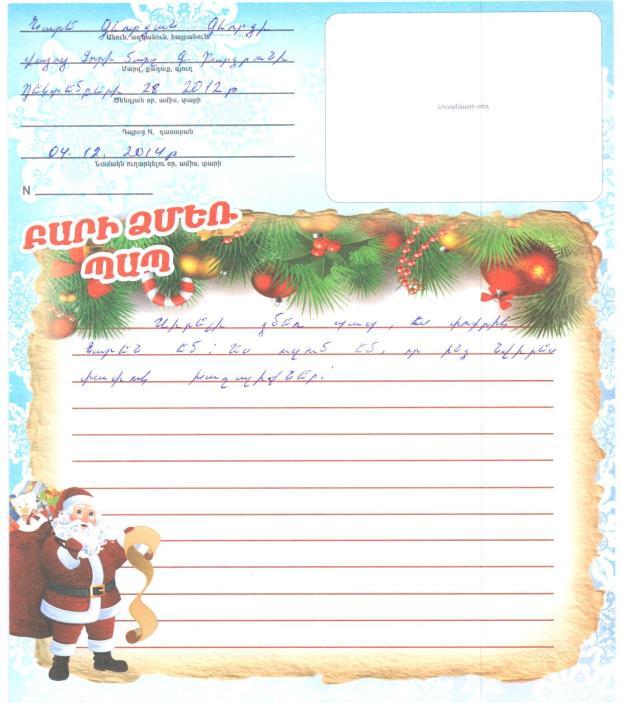 Նարե Գևորգյան Գևորգի
Անուն, ազգանուն, հայրանուն
Մարզ, քաղաք, գյուղ
Դեկտեմբերի 28 2012թ
Ծննդյան օր, ամիս, տարի
Դպրոց N, դասարան
04. 12. 2014թ
Նամակն ուղարկելու օր, ամիս, տարի
N
Լուսանկարի տեղ
ԲԱՐԻ ՁՄԵՌ
ՊԱՊ
Սիրելի ձմեռ պապ, ես փոքրիկ
Նարեն եմ: Ես ուզում եմ, որ ինձ նվիրես
փափուկ խաղալիքներ: